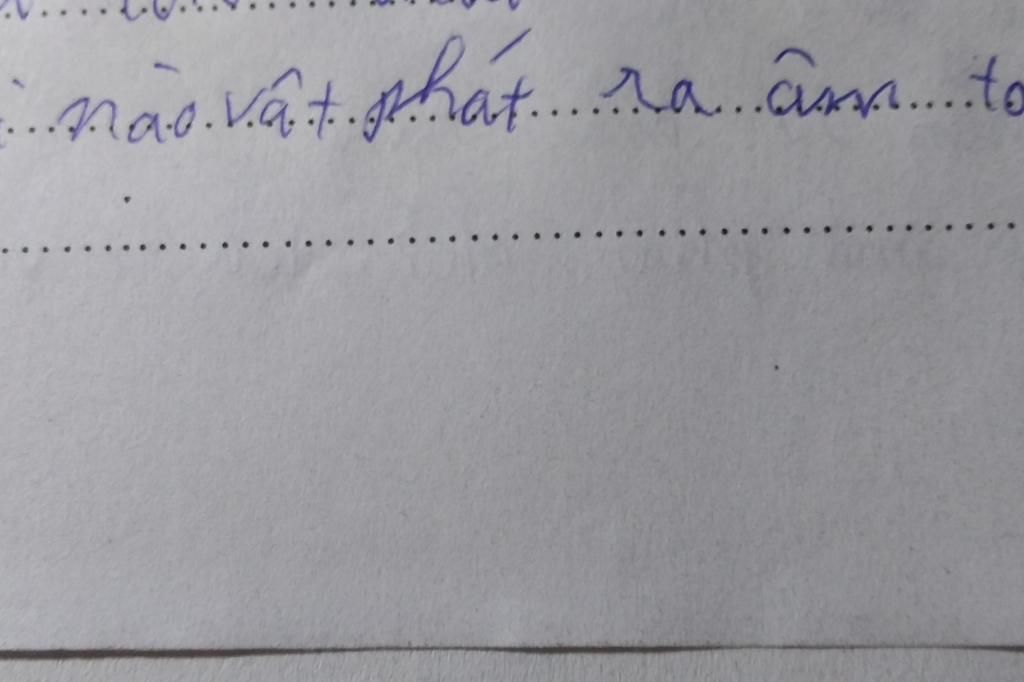 nào vật phát ra âm to